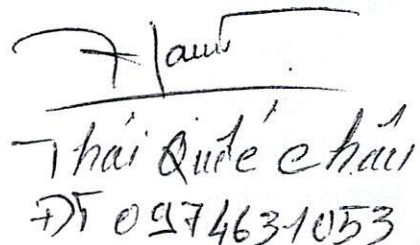 Thái Quốc Châu
ĐT 0974631053